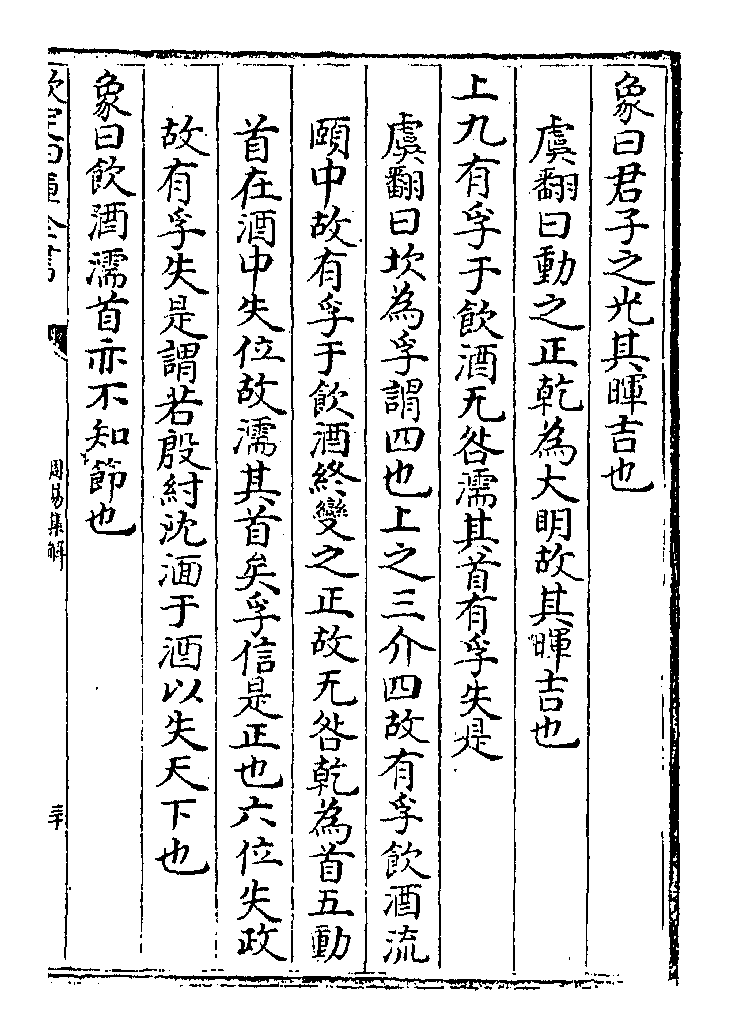 象曰君子之光其暉吉也
虞翻曰動之正乾為大明故其暉吉也
上九有孚于飲酒无咎濡其首有孚失是
虞翻曰坎為孚謂四也上之三介四故有孚飲酒流
頤中故有孚于飲酒終變之正故无咎乾為首五動
首在酒中失位故濡其首矣孚信是正也六位失政
故有孚失是謂若殷紂沈湎于酒以失天下也
象曰飲酒濡首亦不知節也
欽定四庫全書
周易集解